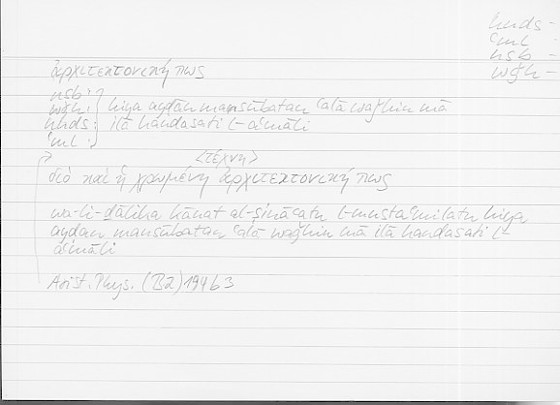 hnds –
ʿml –
nsb –
wǧh –
ἀρχιτεκτονική πως
nsb:
wǧh: hiya ayḍan mansūbatan ʿalā waǧhin mā
hnds: ilā handasati l-aʿmāli
ʿml:
<τέχνη>
διὸ καὶ ἡ χρωμένη ἀρχιτεκτονική πως
wa-li-ḏālika kānat al-ṣināʿatu l-mustaʿmilatu hiya
ayḍan mansūbatan ʿalā waǧhin mā ilā handasati l-
aʿmāli
Arist. Phys. (B2) 194b3